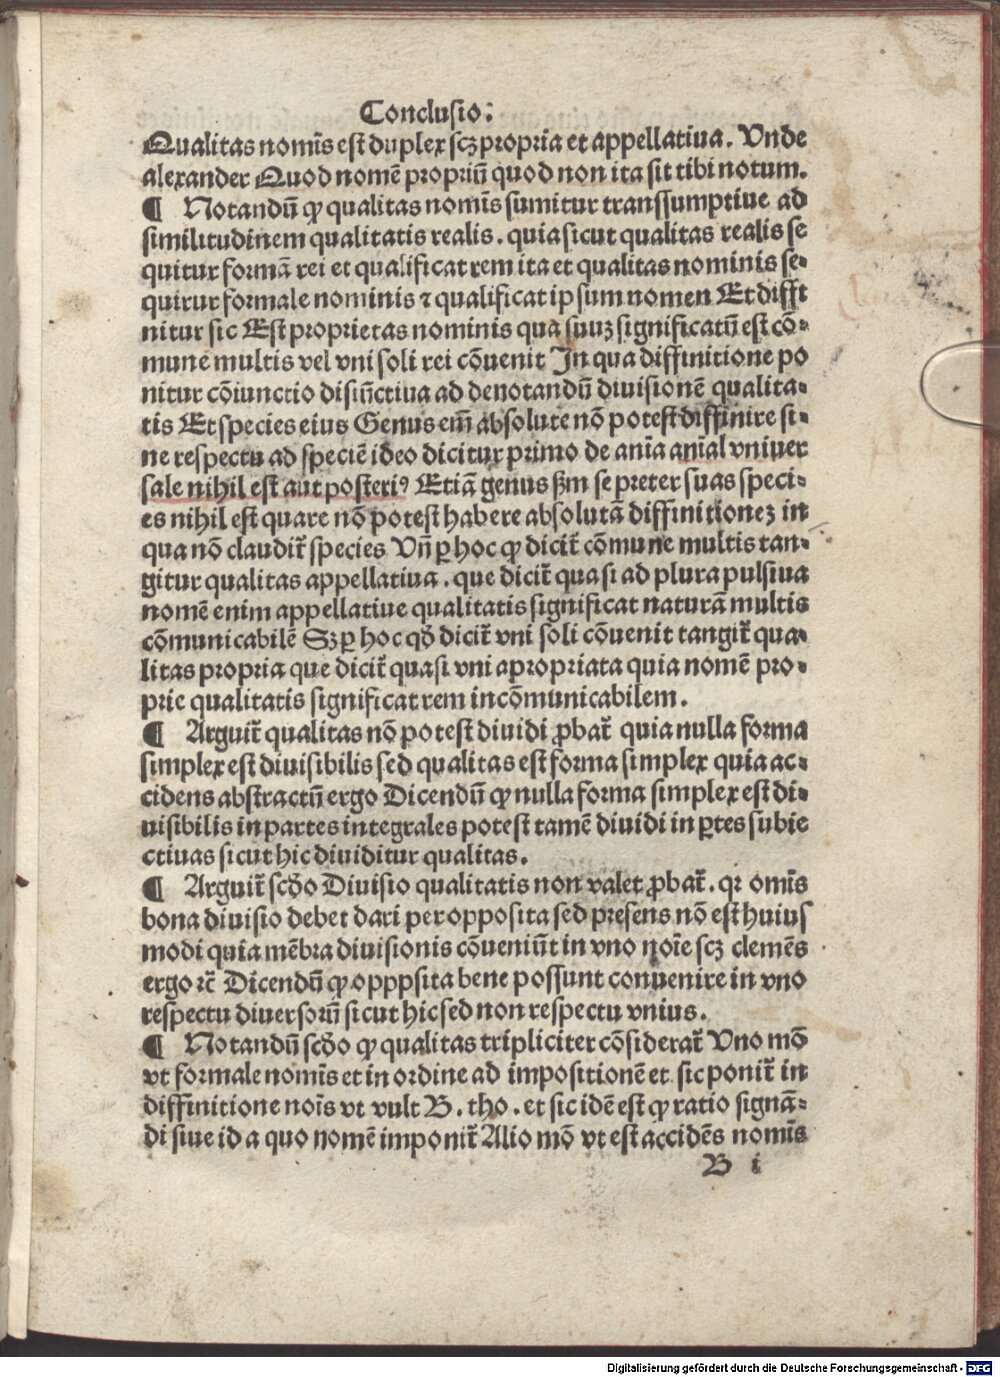 Conclusio:
Qualitas nomīs est duplex scꝫ propria et appellatiua. Vnde
alexander Quod nomē propriū quod non ita sit tibi notum.
¶ Notandū ꝙ qualitas nomīs sumitur transsumptiue ad
similitudinem qualitatis realis. quia sicut qualitas realis se
quitur formā rei et qualificat rem ita et qualitas nominis se⸗
quitur formale nominis ⁊ qualificat ipsum nomen Et diffi
nitur sic Est proprietas nominis qua suuꝫ significatū est cō⸗
mune multis vel vni soli rei cōuenit In qua diffinitione po
nitur cōiunctio disiūctiua ad denotandū diuisionē qualita⸗
tis Et species eius Genus em̄ absolute nō potest diffinire si⸗
ne respectu ad speciē ideo dicitur primo de ania anial vniuer
sale nihil est aut posteriꝰ Etiā genus ẜm se preter suas speci⸗
es nihil est quare nō potest habere absolutā diffinitionez in
qua nō claudit᷑ species Vn̄ ꝑ hoc ꝙ dicit᷑ cōmune multis tan⸗
gitur qualitas appellatiua. que dicit᷑ quasi ad plura pulsiua
nomē enim appellatiue qualitatis significat naturā multis
cōmunicabilē Sꝫ ꝑ hoc qđ dicit᷑ vni soli cōuenit tangit᷑ qua⸗
litas propria que dicit᷑ quasi vni apropriata quia nomē pro⸗
prie qualitatis significat rem incōmunicabilem.
¶ Arguit᷑ qualitas nō potest diuidi ꝓbat᷑ quia nulla forma
simplex est diuisibilis sed qualitas est forma simplex quia ac⸗
cidens abstractū ergo Dicendū ꝙ nulla forma simplex est di⸗
uisibilis in partes integrales potest tamē diuidi in ꝑtes subie
ctiuas sicut hic diuiditur qualitas.
¶ Arguit᷑ scđo Diuisio qualitatis non valet ꝓbat᷑. qꝛ omīs
bona diuisio debet dari per opposita sed presens nō est huius
modi quia mēbra diuisionis cōueniūt in vno noīe scꝫ clemēs
ergo ⁊c̄ Dicendū ꝙ opppsita bene possunt conuenire in vno
respectu diuersorū sicut hic sed non respectu vnius.
¶ Notandū scđo ꝙ qualitas tripliciter cōsiderat᷑ Vno mō
vt formale nomīs et in ordine ad impositionē et sic ponit᷑ in
diffinitione noīs vt vult B. tho. et sic idē est ꝙ ratio signā⸗
di siue id a quo nomē imponit᷑ Alio mō vt est accidēs nomīs
B i
Digitalisierung gefördert durch die Deutsche Forschungsgemeinschaft - DFG